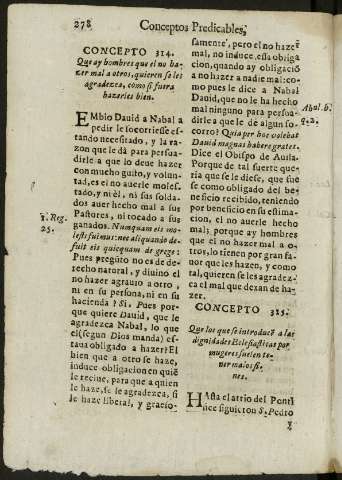 278 Conceptos Predicables,
CONCEPTO 314.
Que ay hombres que el no ha-
zer mal a otros, quieren se les
agradezca, como si fuera
hazerles bien.
EMbio Dauid a Nabal a
pedir le socorriesse es-
tando necesitado, y la ra-
zon que le dà para persua-
dirle a que lo deue hazer
con mucho guito, y volun-
tad, es el no auerle moles-
tado, ni èl, ni sus solda-
dos auer hecho mal a sus
Pastores, ni tocado a sus
ganados. Numquam eis mo-
lesti fuimus: nec aliquando de-
fuit eis quicquam de grege:
Pues pregũto no es de de-
recho natural, y diuino el
no hazer agrauio a otro,
ni en su persona, ni en su
hacienda? Si. Pues por-
que quiere Dauid, que le
agradezca Nabal, lo que
el (segun Dios manda) es-
taua obligado a hazer? El
bien que a otro se haze,
induce obligacion en quiẽ
le reciue, para que a quien
le haze, se le agradezca, si
le haze liberal, y gracio-
1. Reg.
25.
samente, pero el no hazer
mal, no induce essa obliga
cion, quando ay obligaciõ
a no hazer a nadie mal: co-
mo pues le dice a Nabal
Dauid, que no le ha hecho
mal ninguno para persua-
dirle a que le dè algun so-
corro? Quia per hoc volebat
Dauid magnas habere grates.
Dice el Obispo de Auila.
Porque de tal suerte que-
ria que se le diese, que fuè
se como obligado del be-
neficio recibido, teniendo
por beneficio en su estima-
cion, el no auerle hecho
mal; porque ay hombres
que el no hazer mal a o-
tros, lo tienen por gran fa-
uor que les hazen, y como
tal, quieren se les agradez-
ca el mal que dexan de ha-
zer.
Abul. b.
q. 2.
CONCEPTO 315.
Que los que se introducẽ a las
dignidades Eclesiasticas por
mugeres suelen te-
ner malos fi-
nes.
HAsta el atrio del Ponti
fice siguieron S. Pedro
y